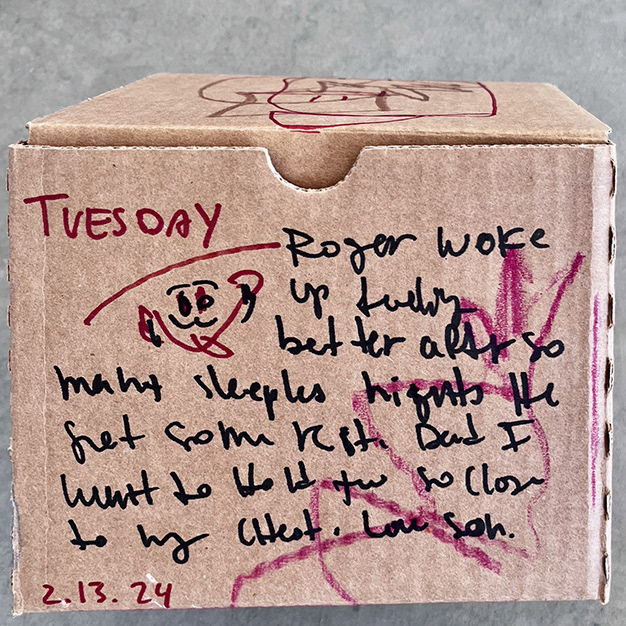 TUESDAY
Roger woke
up feeling
better after so
many sleepless nights He
get some rest. Dad I
want to Hold you so close
to my Chest. Love Son.
2.13.24